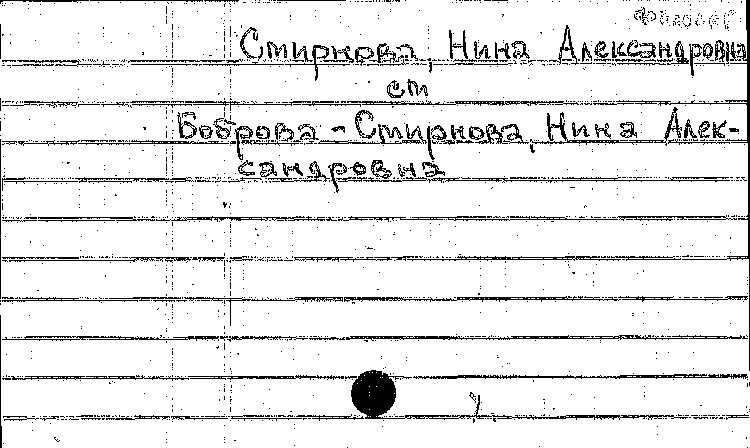 Филолог
Смирнова, Нина Александровна
см
Боброва - Смирнова, Нина Алек-
сандровна